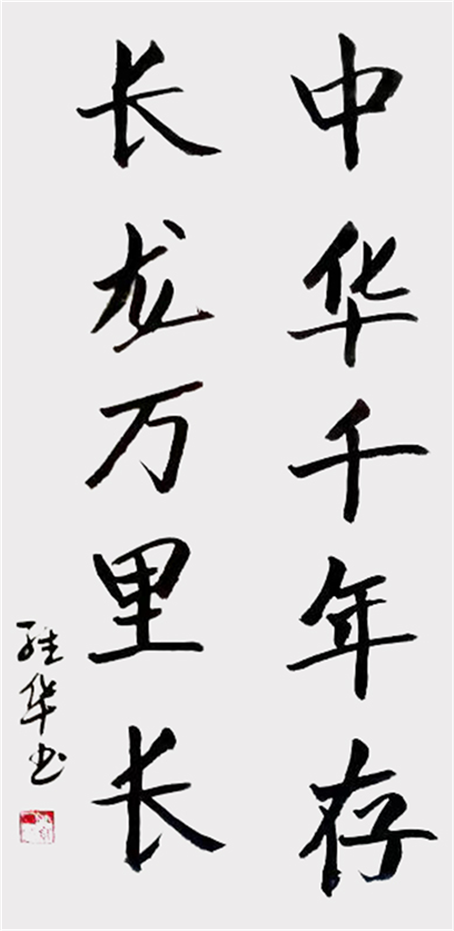 中华千年存
长龙万里长
华书